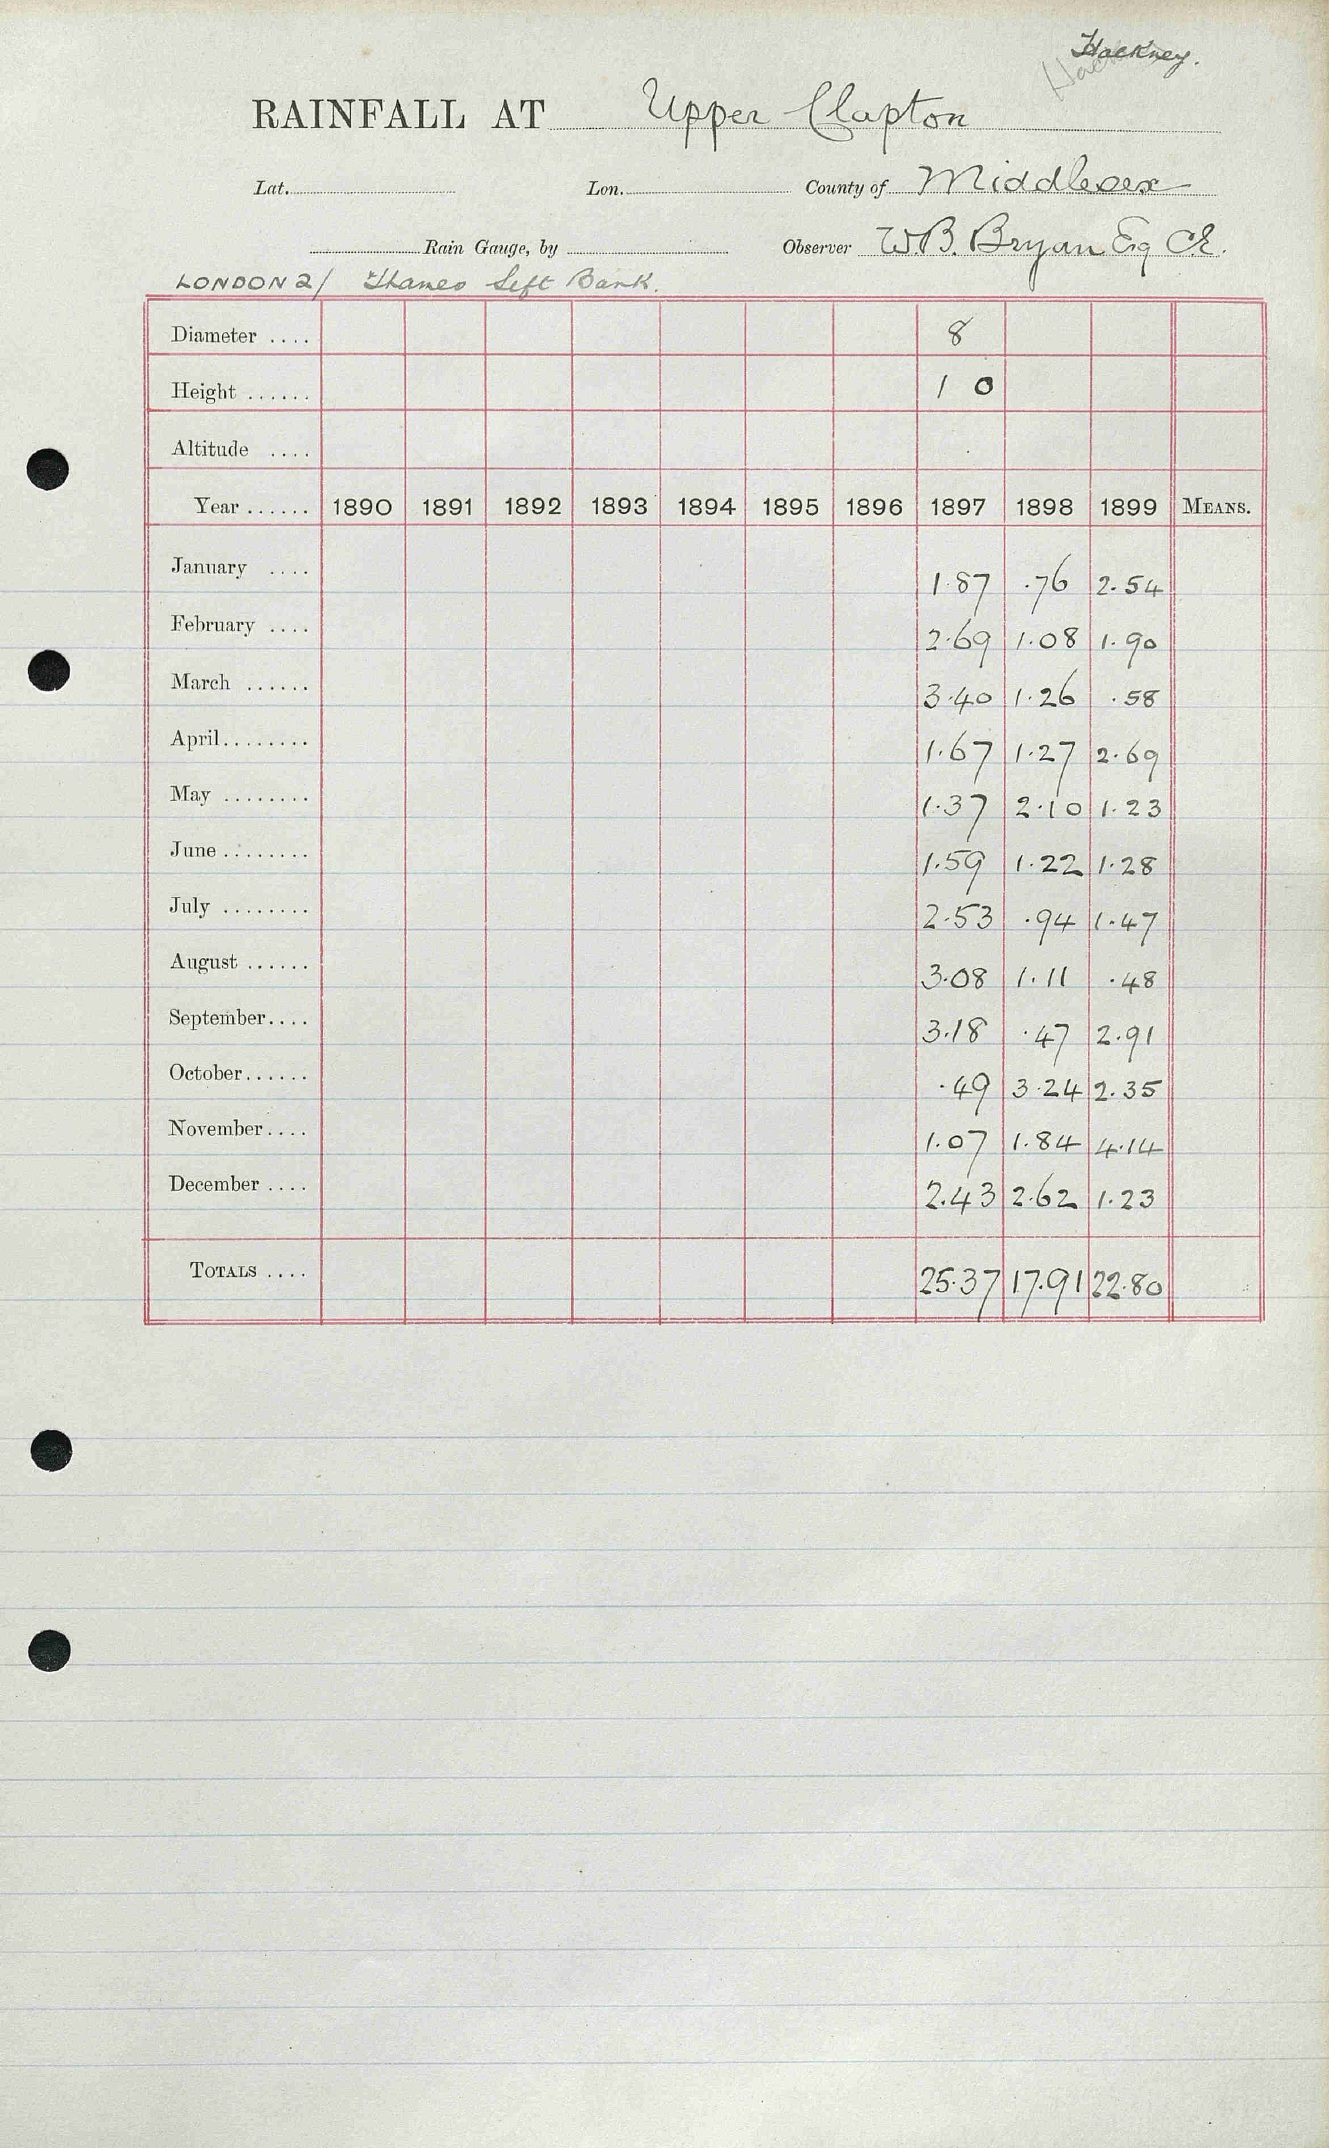 Hackney.
RAINFALL AT Upper Clapton
Lat. Lon. County of Middlesex
Rain Gauge, by Observer W.B. Bryan Esq CE.
LONDON 2/ Thames Left Bank.
Diameter .... 8
Height ...... 1 0
Altitude ....
Year ...... 1890 1891 1892 1893 1894 1895 1896 1897 1898 1899 MEANS.
January .... 1.87 .76 2.54
February .... 2.69 1.08 1.90
March ...... 3.40 1.26 .58
April........ 1.67 1.27 2.69
May ........ 1.37 2.10 1.23
June ........ 1.59 1.22 1.28
July ........ 2.53 .94 1.47
August ...... 3.08 1.11 .48
September.... 3.18 .47 2.91
October...... .49 3.24 2.35
November.... 1.07 1.84 4.14
December .... 2.43 2.62 1.23
TOTALS .... 25.37 17.91 22.80